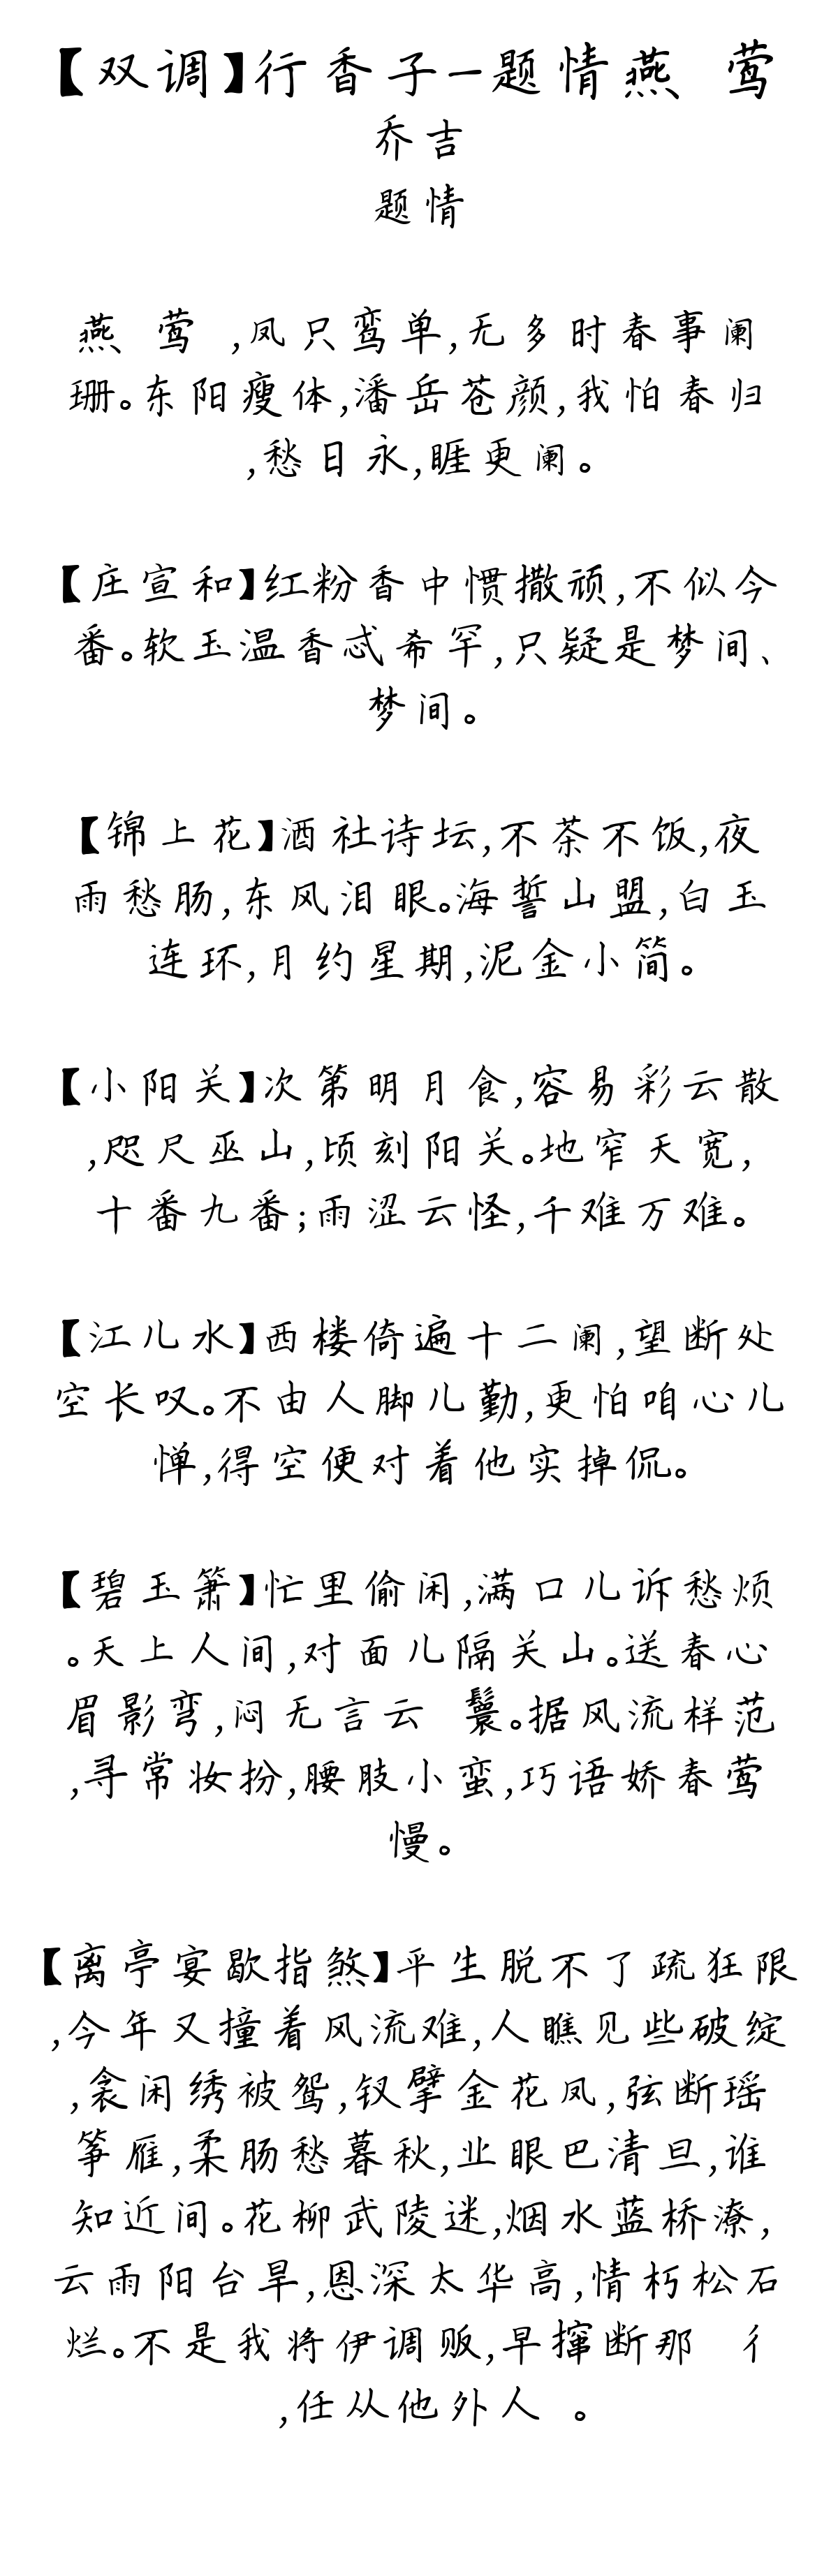 【双调】行香子-题情燕 莺
乔吉
题情
燕 莺 ,凤只鸾单,无多时春事阑
珊。东阳瘦体,潘岳苍颜,我怕春归
,愁日永,睚更阑。
【庄宣和】红粉香中惯撒顽,不似今
番。软玉温香忒希罕,只疑是梦间、
梦间。
【锦上花】酒社诗坛,不茶不饭,夜
雨愁肠,东风泪眼。海誓山盟,白玉
连环,月约星期,泥金小简。
【小阳关】次第明月食,容易彩云散
,咫尺巫山,顷刻阳关。地窄天宽,
十番九番;雨涩云怪,千难万难。
【江儿水】西楼倚遍十二阑,望断处
空长叹。不由人脚儿勤,更怕咱心儿
惮,得空便对着他实掉侃。
【碧玉箫】忙里偷闲,满口儿诉愁烦
。天上人间,对面儿隔关山。送春心
眉影弯,闷无言云 鬟。据风流样范
,寻常妆扮,腰肢小蛮,巧语娇春莺
慢。
【离亭宴歇指煞】平生脱不了疏狂限
,今年又撞着风流难,人瞧见些破绽
,衾闲绣被鸳,钗擘金花凤,弦断瑶
筝雁,柔肠愁暮秋,业眼巴清旦,谁
知近间。花柳武陵迷,烟水蓝桥潦,
云雨阳台旱,恩深太华高,情朽松石
烂。不是我将伊调贩,早撺断那 彳
,任从他外人 。